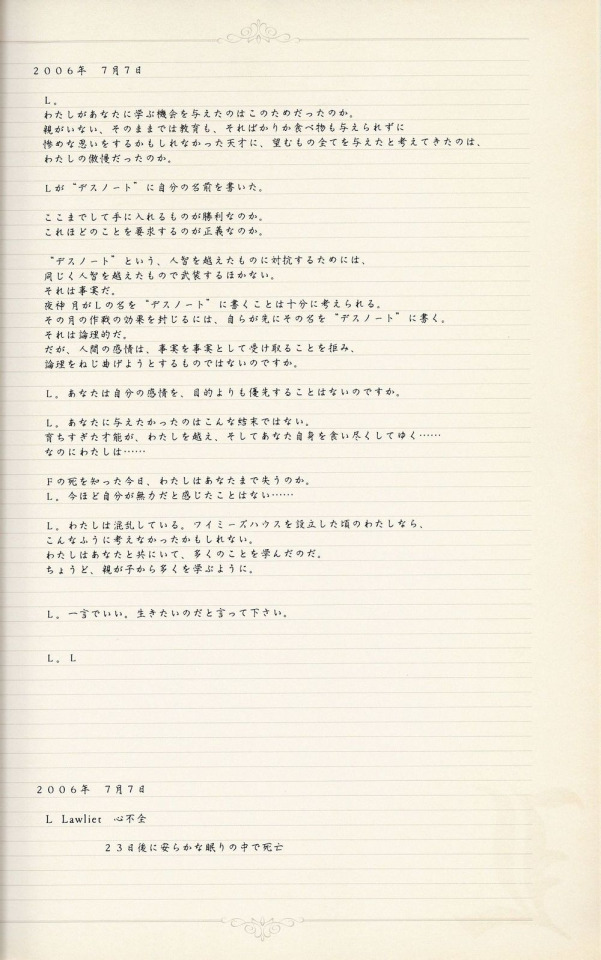 ２００６年　７月７日
Ｌ。
わたしがあなたに学ぶ機会を与えたのはこのためだったのか。
親がいない、そのままでは教育も、そればかりか食べ物も与えられずに
惨めな思いをするかもしれなかった天才に、望むもの全てを与えたと考えてきたのは、
わたしの傲慢だったのか。
Ｌが“デスノート”に自分の名前を書いた。
ここまでして手に入れるものが勝利なのか。
これほどのことを要求するのが正義なのか。
“デスノート”という、人智を越えたものに対抗するためには、
同じく人智を越えたもので武装するほかない。
それは事実だ。
夜神 月がＬの名を“デスノート”に書くことは十分に考えられる。
その月の作戦の効果を封じるには、自らが先にその名を“デスノート”に書く。
それは論理的だ。
だが、人間の感情は、事実を事実として受け取ることを拒み、
論理をねじ曲げようとするものではないのですか。
Ｌ。あなたは自分の感情を、目的よりも優先することはないのですか。
Ｌ。あなたに与えたかったのはこんな結末ではない。
育ちすぎた才能が、わたしを越え、そしてあなた自身を食い尽くしてゆく……
なのにわたしは……
Ｆの死を知った今日、わたしはあなたまで失うのか。
Ｌ。今ほど自分が無力だと感じたことはない……
Ｌ。わたしは混乱している。ワイミーズハウスを設立した頃のわたしなら、
こんなふうに考えなかったかもしれない。
わたしはあなたと共にいて、多くのことを学んだのだ。
ちょうど、親が子から多くを学ぶように。
Ｌ。一言でいい。生きたいのだと言って下さい。
Ｌ。Ｌ
２００６年　７月７日
Ｌ Lawliet　心不全
２３日後に安らかな眠りの中で死亡